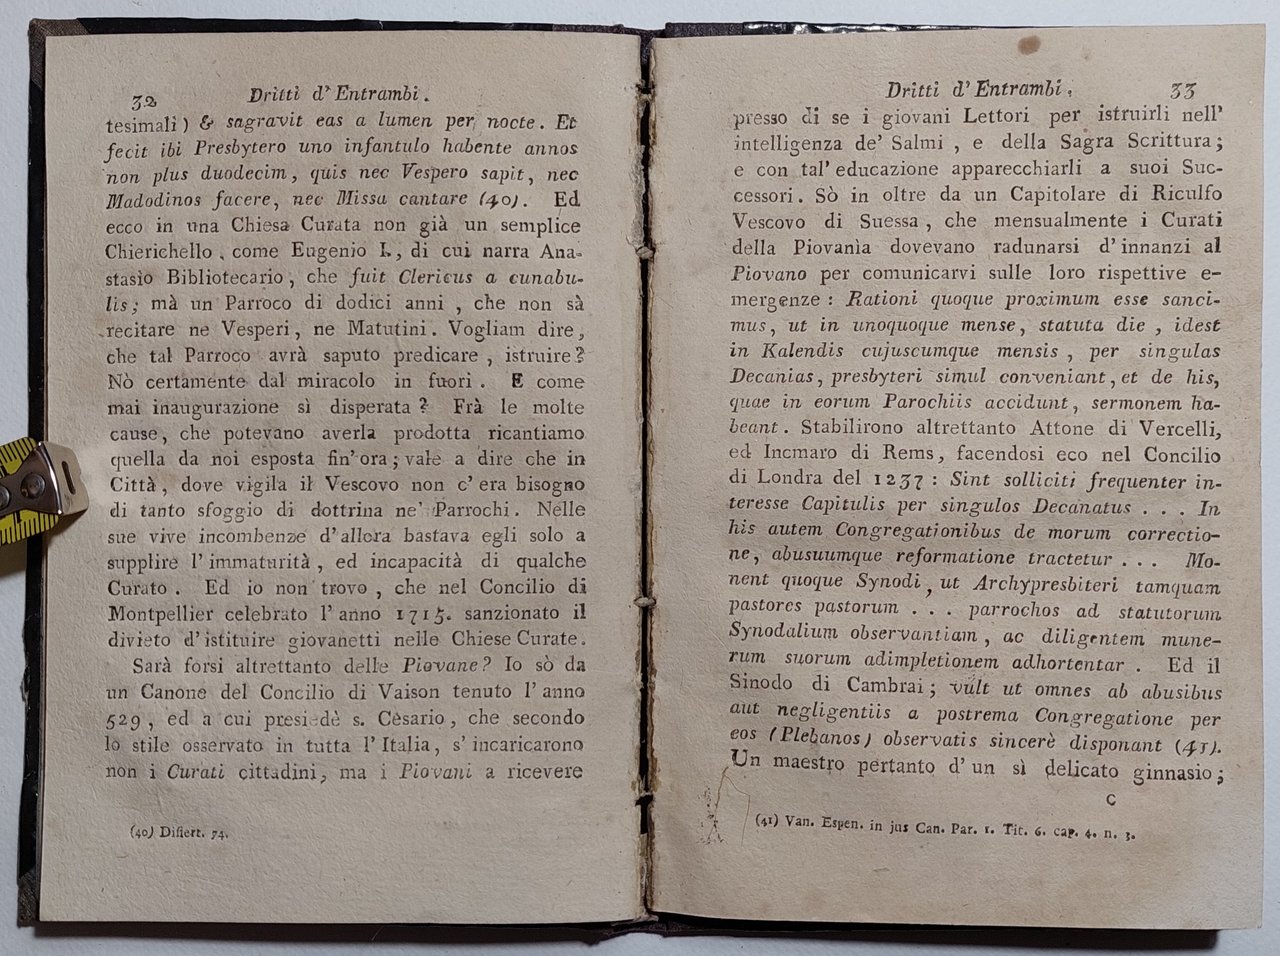 32 Dritti d'Entrambi.
tesimali) & sagravit eas a lumen per nocte. Et
fecit ibi Presbytero uno infantulo habente annos
non plus duodecim, quis nec Vespero sapit, nec
Madodinos facere, nec Missa cantare (40). Ed
ecco in una Chiesa Curata non già un semplice
Chierichello, come Eugenio I., di cui narra Ana-
stasio Bibliotecario, che fuit Clericus a cunabu-
lis; mà un Parroco di dodici anni, che non sà
recitare ne Vesperi, ne Matutini. Vogliam dire,
che tal Parroco avrà saputo predicare, istruire?
Nò certamente dal miracolo in fuori. E come
mai inaugurazione sì disperata? Frà le molte
cause, che potevano averla prodotta ricantiamo
quella da noi esposta fin'ora; vale a dire che in
Città, dove vigila il Vescovo non c'era bisogno
di tanto sfoggio di dottrina ne' Parrochi. Nelle
sue vive incombenze d'allora bastava egli solo a
supplire l'immaturità, ed incapacità di qualche
Curato. Ed io non trovo, che nel Concilio di
Montpellier celebrato l'anno 1715. sanzionato il
divieto d'istituire giovanetti nelle Chiese Curate.
Sarà forsi altrettanto delle Piovane? Io sò da
un Canone del Concilio di Vaison tenuto l'anno
529, ed a cui presiedè s. Cesario, che secondo
lo stile osservato in tutta l'Italia, s'incaricarono
non i Curati cittadini, ma i Piovani a ricevere
(40) Dissert. 74.
Dritti d'Entrambi. 33
presso di se i giovani Lettori per istruirli nell'
intelligenza de' Salmi, e della Sagra Scrittura;
e con tal'educazione apparecchiarli a suoi Suc-
cessori. Sò in oltre da un Capitolare di Riculfo
Vescovo di Suessa, che mensualmente i Curati
della Piovanìa dovevano radunarsi d'innanzi al
Piovano per comunicarvi sulle loro rispettive e-
mergenze: Rationi quoque proximum esse sanci-
mus, ut in unoquoque mense, statuta die, idest
in Kalendis cujuscumque mensis, per singulas
Decanias, presbyteri simul conveniant, et de his,
quae in eorum Parochiis accidunt, sermonem ha-
beant. Stabilirono altrettanto Attone di Vercelli,
ed Incmaro di Rems, facendosi eco nel Concilio
di Londra del 1237: Sint solliciti frequenter in-
teresse Capitulis per singulos Decanatus... In
his autem Congregationibus de morum correctio-
ne, abusuumque reformatione tractetur... Mo-
nent quoque Synodi, ut Archypresbiteri tamquam
pastores pastorum... parrochos ad statutorum
Synodalium observantiam, ac diligentem mune-
rum suorum adimpletionem adhortentar. Ed il
Sinodo di Cambrai; vult ut omnes ab abusibus
aut negligentiis a postrema Congregatione per
eos (Plebanos) observatis sincerè disponant (41).
Un maestro pertanto d'un sì delicato ginnasio;
C
(41) Van. Espen. in jus Can. Par. 1. Tit. 6. cap. 4. n. 3.